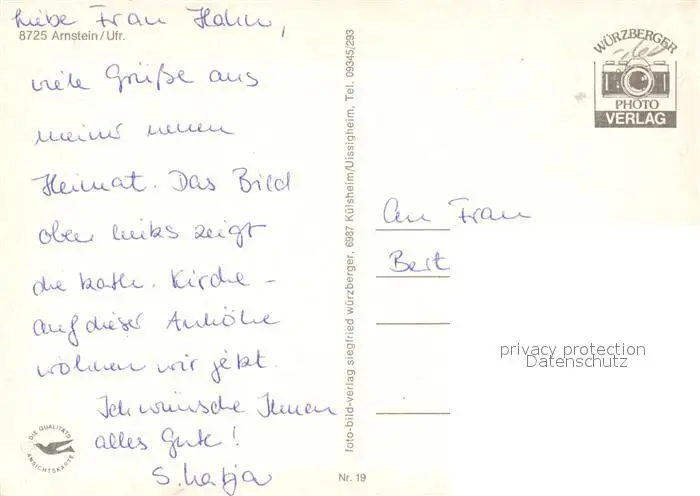 liebe Frau Hahn,
8725 Arnstein/Ufr.
viele Grüße aus
meiner neuen
Heimat. Das Bild
oben links zeigt
die kath. Kirche -
auf dieser Anhöhe
wohnen wir jetzt.
Ich wünsche Ihnen
alles Gute!
S. Katja
DIE QUALITÄTS
ANSICHTSKARTE
Nr. 19
foto-bild-verlag siegfried würzberger, 6987 Külsheim/Uissigheim, Tel. 09345/293
WÜRZBERGER
PHOTO
VERLAG
An Frau
Bert
privacy protection
Datenschutz